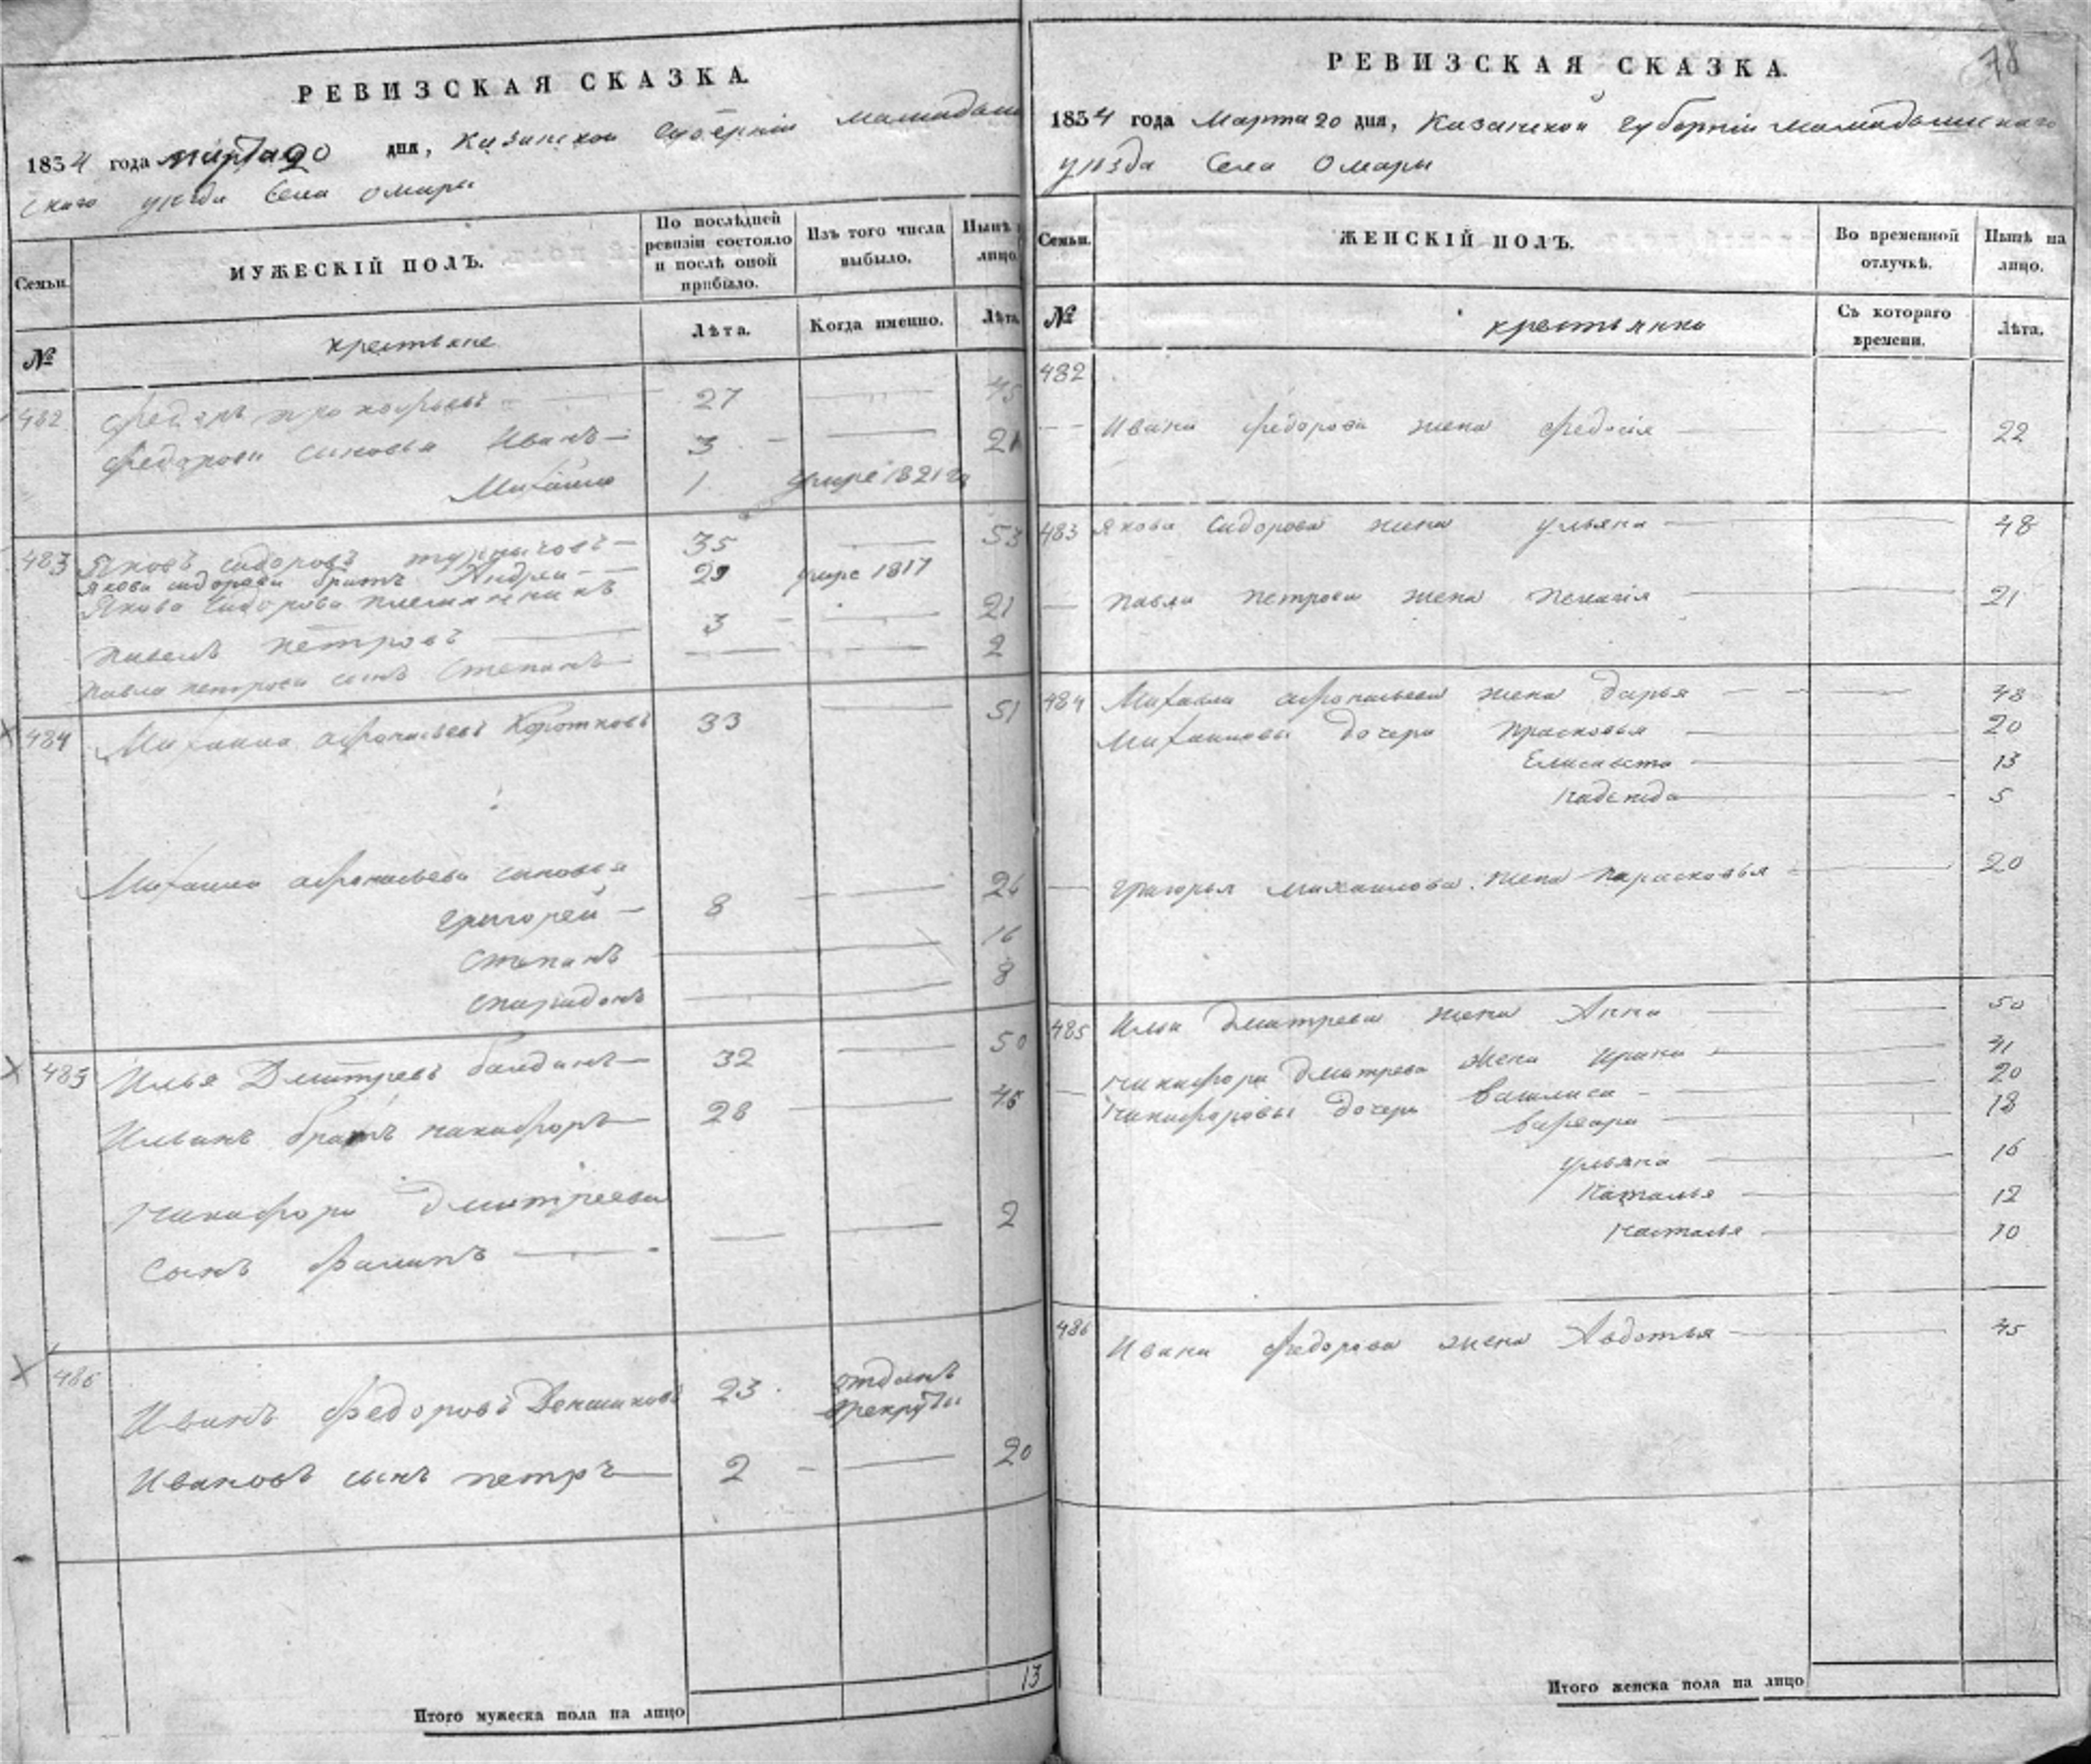 РЕВИЗСКАЯ СКАЗКА.
1834 года марта 20 дня, Казанской Губернiи мамадыш
скаго уѣзда Села Омары
Семьи.
МУЖЕСКIЙ ПОЛЪ.
По послѣдней
ревизiи состояло
и послѣ оной
прибыло.
Изъ того числа
выбыло.
Нынѣ
лицо.
№
крестьяне
Лѣта.
Когда именно.
Лѣта.
482 Федоръ прокофьевъ 27 45
Федорови сыновья Иванъ 3 21
Михайло 1 умре 1821 го
483 Яковъ сидоровъ 35 53
Якова сидорова братъ Андреи 29 умре 1817
Якова Сидорова племянникъ
павелъ петровъ 3 21
павла петрова сынъ Степанъ 2
484 Михаила афонасьевъ Коротковъ 33 51
Михаила афонасьева сыновья
григорей 8 26
степанъ 16
спиридонъ 8
485 Илья Дмитревъ балдинъ 32 50
Ильинъ братъ никифоръ 28 46
Никифора дмитреева
сынъ филипъ 2
486 Иванъ Федоровъ Деншиковъ 23 отданъ
врекруты
Ивановъ сынъ петръ 2 20
13
Итого мужеска пола на лицо
78
РЕВИЗСКАЯ СКАЗКА.
1834 года Марта 20 дня, Казанской Губернiи мамадышскаго
уѣзда Села Омары
Семьи.
ЖЕНСКIЙ ПОЛЪ.
Во временной
отлучкѣ.
Нынѣ на
лицо.
№
крестьянки
Съ котораго
времени.
Лѣта.
482
Ивана федорова жена федосiя 22
483 Якова Сидорова жена ульяна 48
павла петрова жена пелагiя 21
484 Михаила афонасьева жена дарья 48
Михаиловы дочери прасковья 20
Елисавета 13
надежда 5
григорья михаилова жена парасковья 20
485 Ильи дмитрева жена Анна 50
никифора дмитрева жена ирина 41
никифоровы дочери василиса 20
варвара 18
ульяна 16
наталья 12
настасья 10
486
Ивана федорова жена Авдотья 45
Итого женска пола на лицо